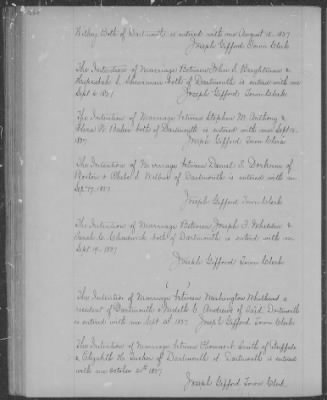 Wilbey both of Dartmouth is entered with me August 18. 1837
Joseph Gifford Town Clerk
The Intention of Marriage Between John S. Naughtum &
Hepsidah S. Shearman both of Dartmouth is entered with me
Sept 6. 1837 Joseph Gifford Town Clerk
The Intention of Marriage between Stephen M. Anthony &
N. Baker both of Dartmouth is entered with me Sept 15.
1837. Joseph Gifford Town Clerk
The Intention of Marriage between Daniel S. of
Boston & Phebe S. Wilbur of Dartmouth is entered with me
Sep. 17. 1837
Joseph Gifford Town Clerk
The Intention of Marriage Between Joseph T. Whelden &
Sarah C. Chadwick both of Dartmouth is entered with me
Sept 19. 1837
Joseph Gifford Town Clerk
The Intention of Marriage between Washington a
resident of Dartmouth & C. Andrews of Said Dartmouth
is entered with me Sept 1837 Joseph Gifford Town Clerk
The Intention of Marriage between Smith of
& Elizabeth H. Tucker of Dartmouth is entered
with me October 20th 1837.
Joseph Gifford Town Clerk